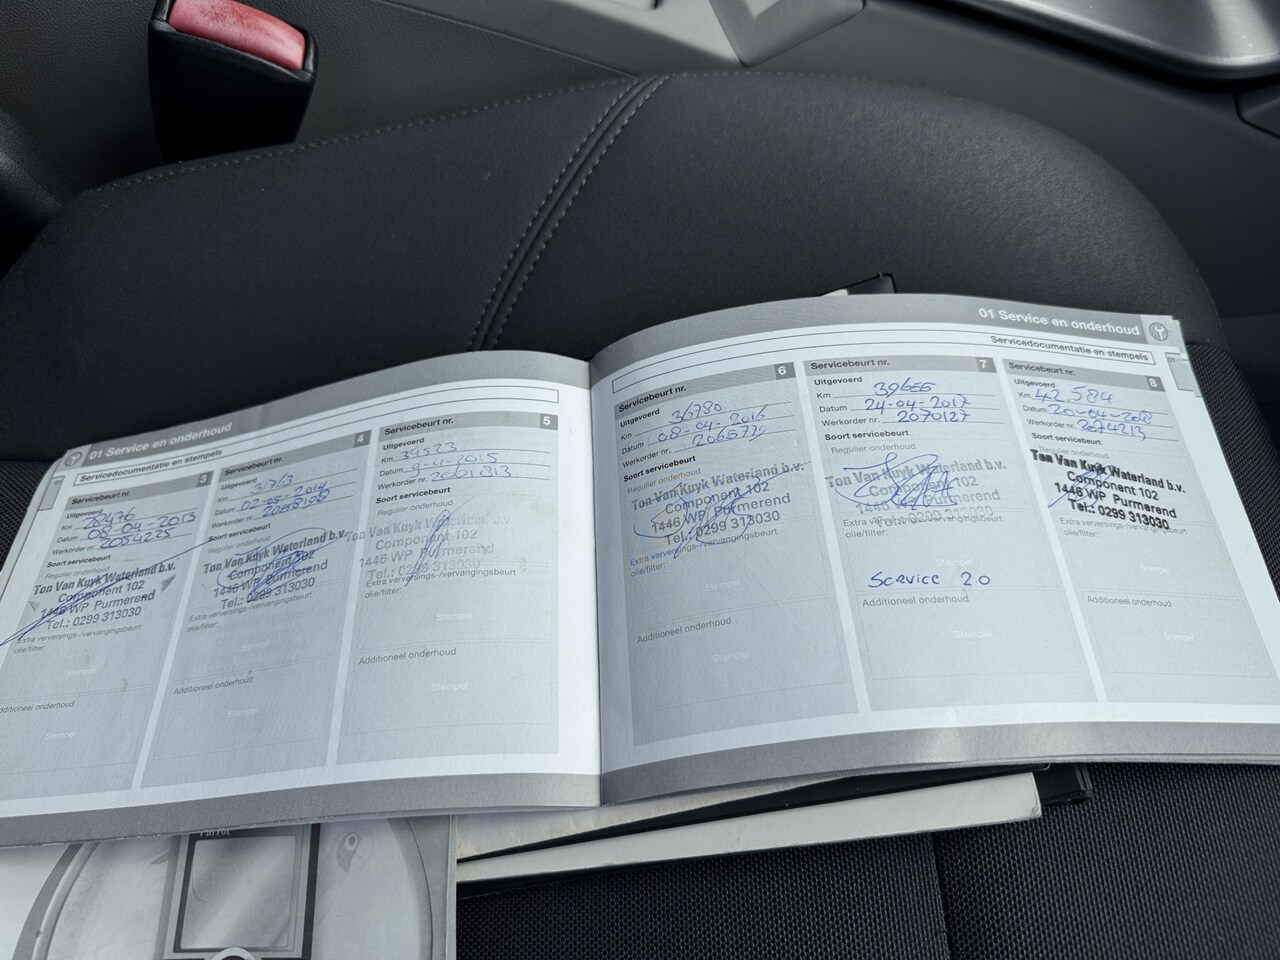 01 Service en onderhoud
Servicedocumentatie en stempels
Servicebeurt nr. 3
Uitgevoerd
Km
Datum 08-04-2013
Werkorder nr. 2054225
Soort servicebeurt
Regulier onderhoud
Ton Van Kuyk Waterland b.v.
Component 102
1446 WP Purmerend
Tel.: 0299 313030
Extra verversings-/vervangingsbeurt
olie/filter:
Stempel
Additioneel onderhoud
Stempel
Servicebeurt nr. 4
Uitgevoerd
Km
Datum 02-05-2014
Werkorder nr.
Soort servicebeurt
Regulier onderhoud
Ton Van Kuyk Waterland b.v.
Component 102
1446 WP Purmerend
Tel.: 0299 313030
Extra verversings-/vervangingsbeurt
olie/filter:
Stempel
Additioneel onderhoud
Stempel
Servicebeurt nr. 5
Uitgevoerd
Km 34523
Datum 9-4-2015
Werkorder nr. 2061313
Soort servicebeurt
Regulier onderhoud
Ton Van Kuyk Waterland b.v.
Component 102
1446 WP Purmerend
Tel.: 0299 313030
Extra verversings-/vervangingsbeurt
olie/filter:
Stempel
Additioneel onderhoud
Stempel
01 Service en onderhoud
Servicedocumentatie en stempels
01
Servicebeurt nr. 6
Uitgevoerd
Km 36780
Datum 08-04-2016
Werkorder nr. 2065779
Soort servicebeurt
Regulier onderhoud
Ton Van Kuyk Waterland b.v.
Component 102
1446 WP Purmerend
Tel.: 0299 313030
Extra verversings-/vervangingsbeurt
olie/filter:
Additioneel onderhoud
Stempel
Servicebeurt nr. 7
Uitgevoerd
Km 39655
Datum 24-04-2017
Werkorder nr. 2070127
Soort servicebeurt
Regulier onderhoud
Ton Van Kuyk Waterland b.v.
Component 102
1446 WP Purmerend
Tel.: 0299 313030
Extra verversings-/vervangingsbeurt
olie/filter:
Service 20
Additioneel onderhoud
Stempel
Servicebeurt nr. 8
Uitgevoerd
Km 42 584
Datum 20-04-2018
Werkorder nr. 2074213
Soort servicebeurt
Regulier onderhoud
Ton Van Kuyk Waterland b.v.
Component 102
1446 WP Purmerend
Tel.: 0299 313030
Extra verversings-/vervangingsbeurt
olie/filter:
Stempel
Additioneel onderhoud
Stempel
Parrot